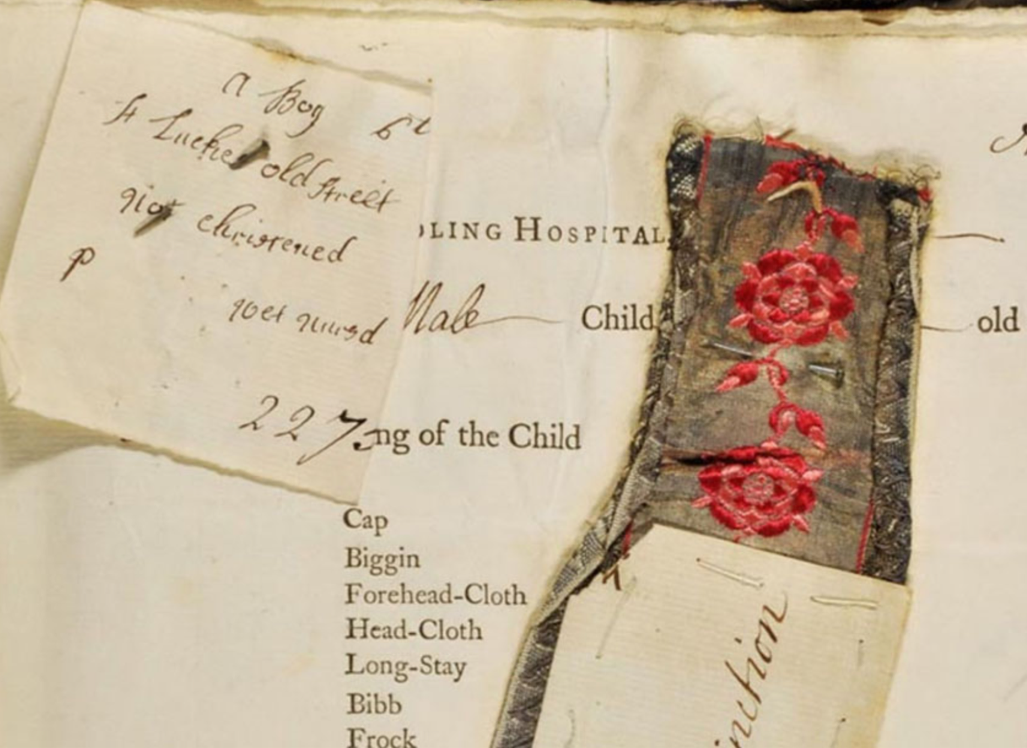 A Boy
bt
St Lucke old street
not christened
p
not nursd
2275
LING HOSPITAL
Male Child old
ng of the Child
Cap
Biggin
Forehead-Cloth
Head-Cloth
Long-Stay
Bibb
Frock
inction